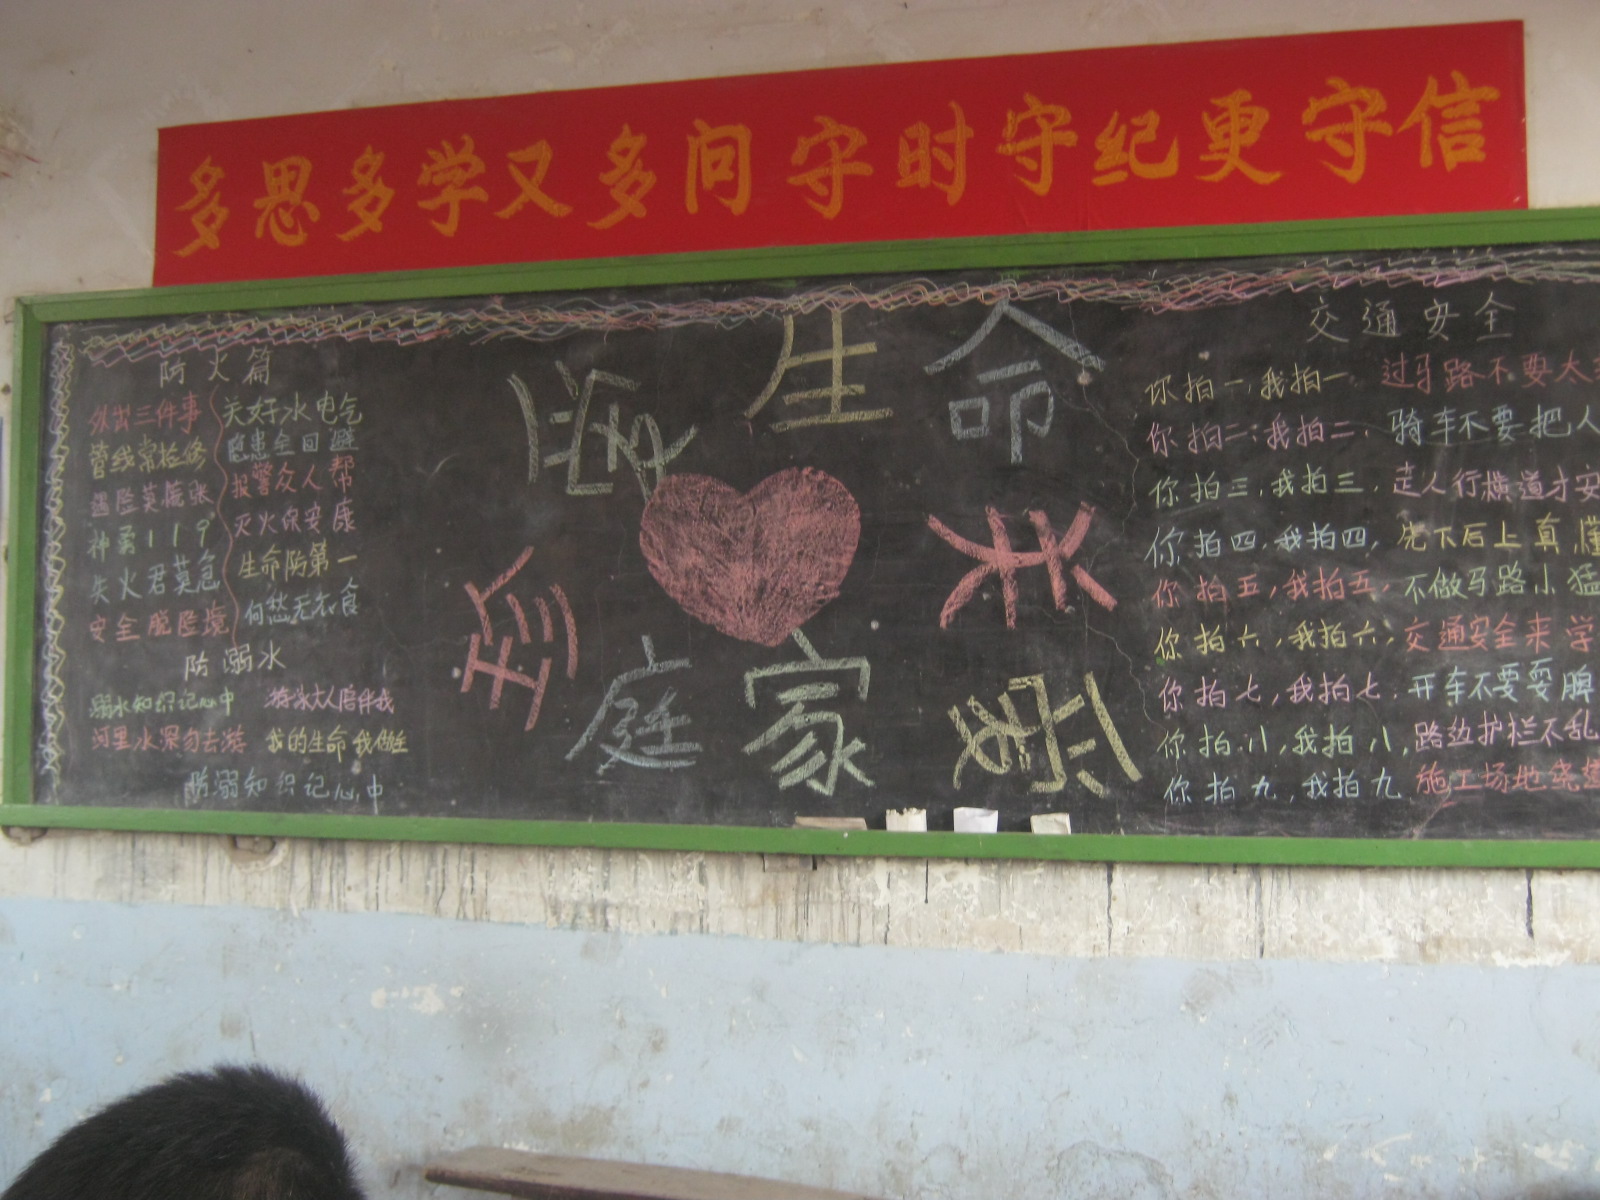 多思多学又多问守时守纪更守信
防火篇
外出三件事 关好水电气
管线常检修 隐患全回避
遇险莫慌张 报警众人帮
神勇119 灭火保安康
失火君莫急 生命防第一
安全脱险境 何愁无衣食
防溺水
溺水知识记心中 游泳大人陪伴我
河里水深勿去游 我的生命我做主
防溺知识记心中
生命
家庭
交通安全
你拍一,我拍一 过马路不要太
你拍二,我拍二, 骑车不要把人
你拍三,我拍三, 走人行横道才安
你拍四,我拍四, 先下后上真懂
你拍五,我拍五, 不做马路小猛
你拍六,我拍六, 交通安全来学
你拍七,我拍七, 开车不要耍脾
你拍八,我拍八, 路边护栏不乱
你拍九,我拍九 施工场地绕